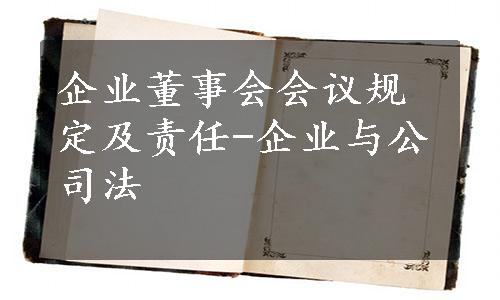 企业董事会会议规
定及责任-企业与公
司法